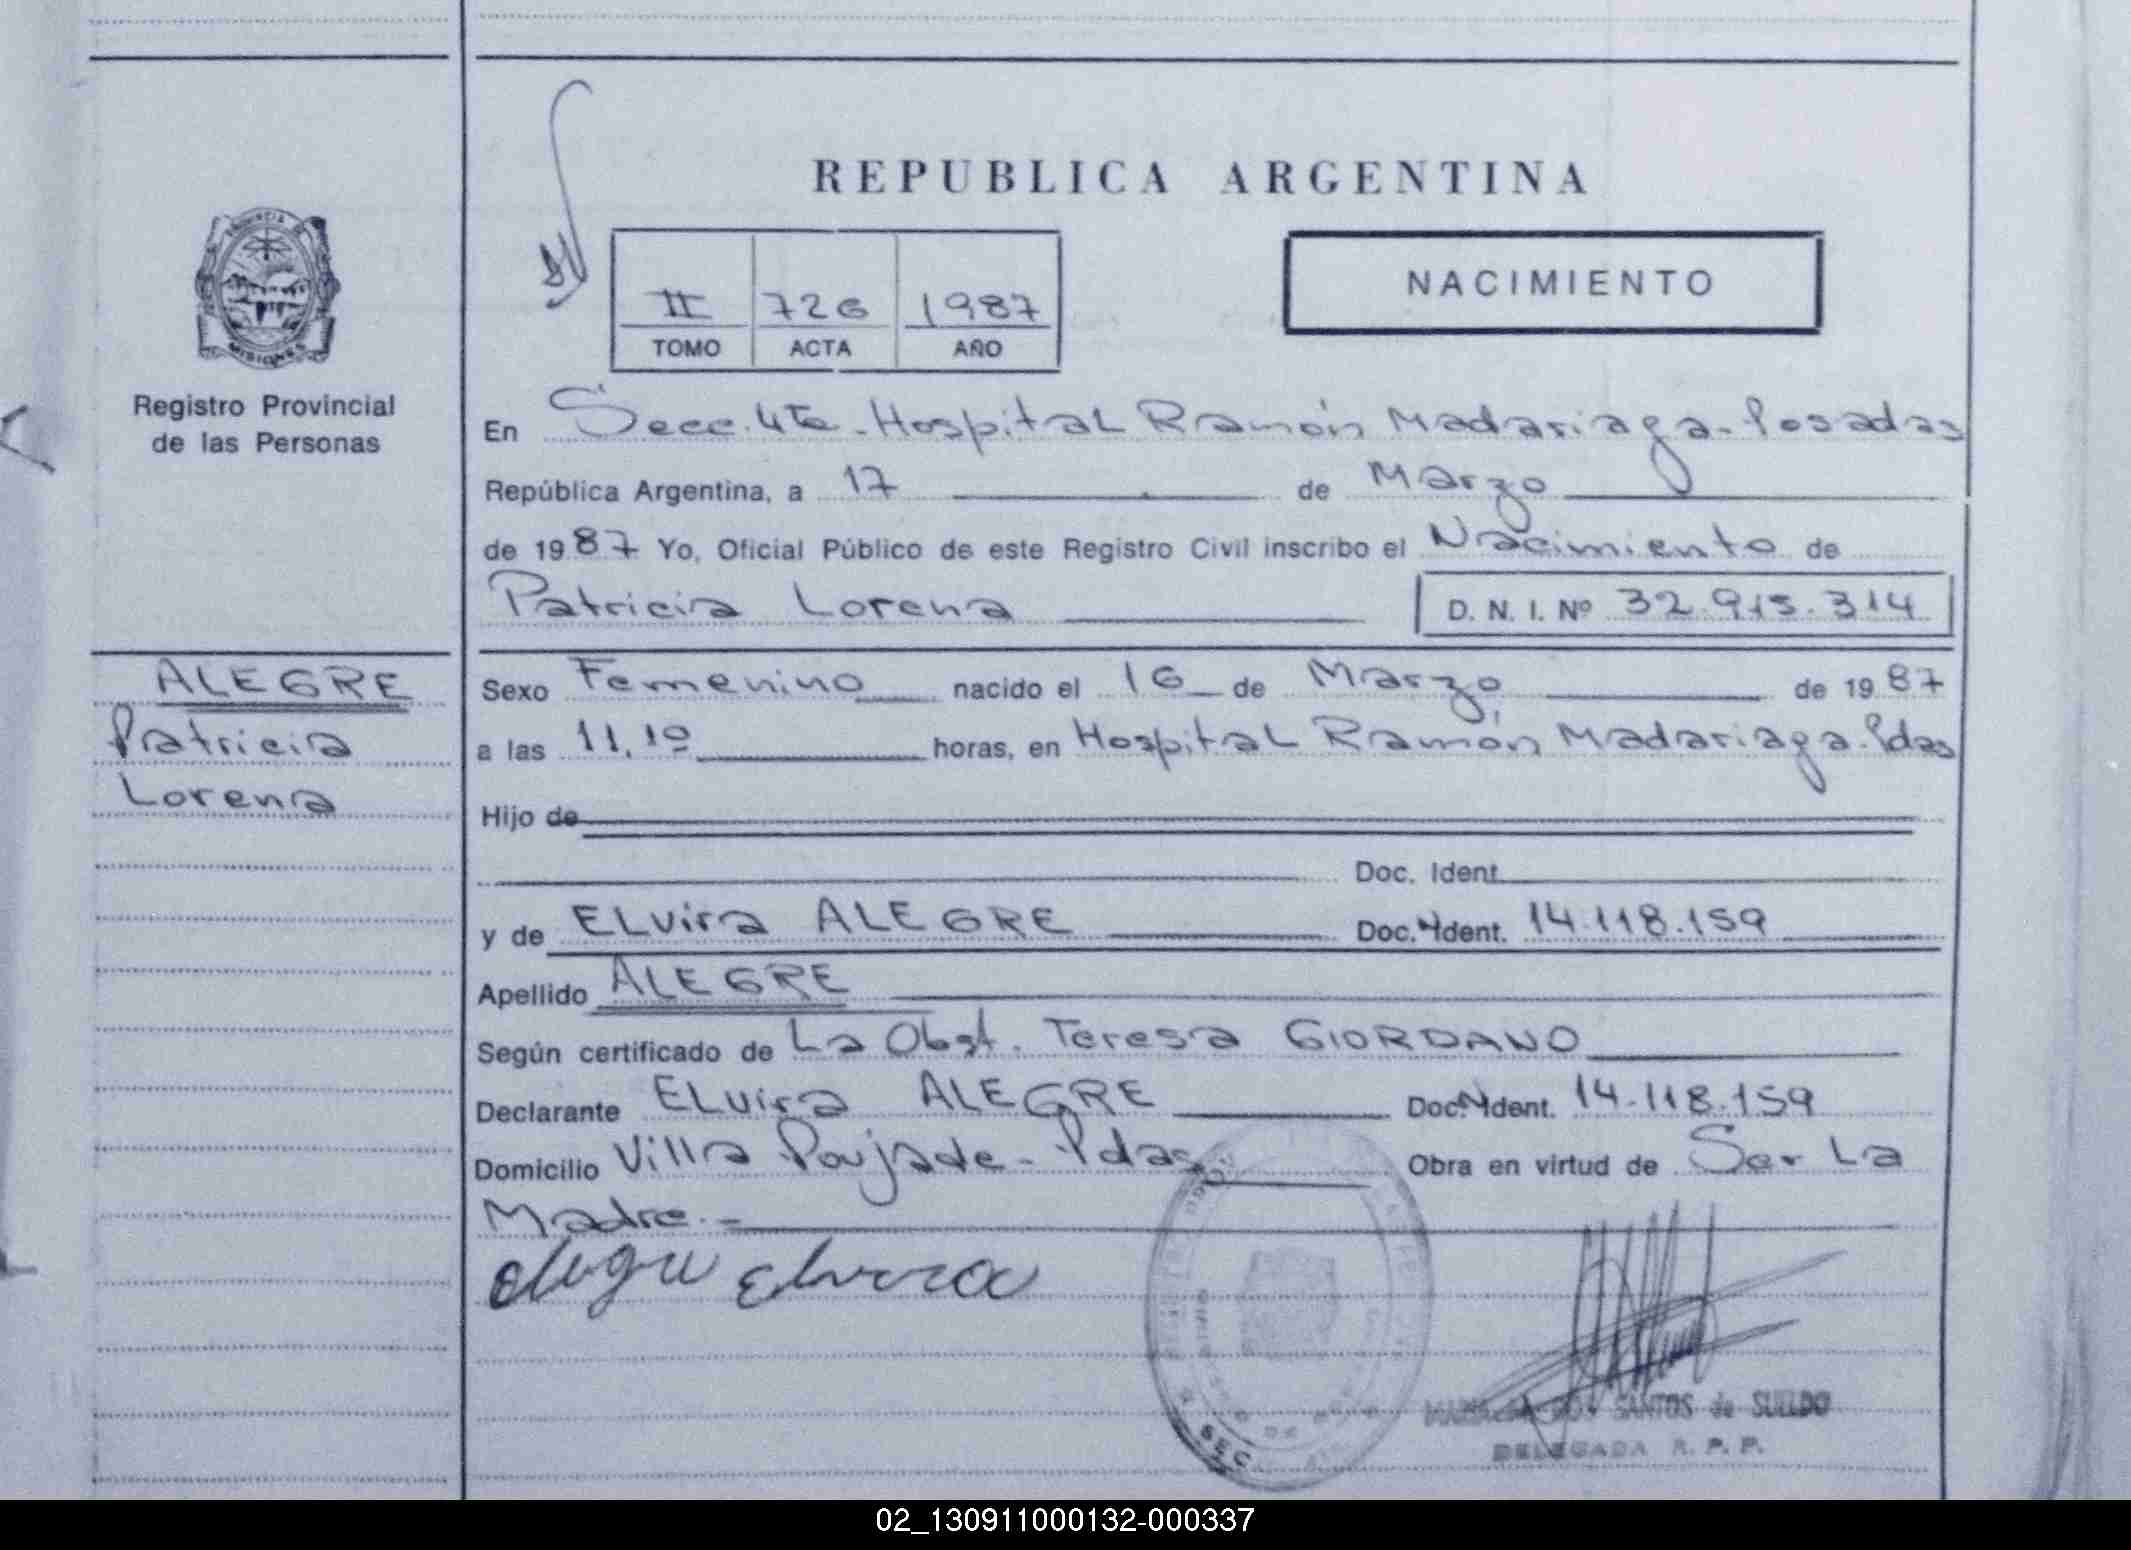 REPUBLICA ARGENTINA
PROVINCIA
MISIONES
Registro Provincial
de las Personas
II 726 1987
TOMO ACTA AÑO
NACIMIENTO
En Secc. 4ta - Hospital Ramón Madariaga - Posadas
República Argentina, a 17 de Marzo
de 1987 Yo, Oficial Público de este Registro Civil inscribo el Nacimiento de
Patricia Lorena D. N. I. Nº 32.915.314
ALEGRE
Patricia
Lorena
Sexo Femenino nacido el 16 de Marzo de 1987
a las 11,10 horas, en Hospital Ramón Madariaga - Pdas
Hijo de
Doc. Ident.
y de ELvira ALEGRE Doc. Ident. 14.118.159
Apellido ALEGRE
Según certificado de La Obst. Teresa GIORDANO
Declarante ELvira ALEGRE Doc. Ident. 14.118.159
Domicilio Villa Poujade - Pdas Obra en virtud de Ser La
Madre.-
Alegre Elvira
SEC
SANTOS de SUELDO
DELEGADA R. P. P.
02_130911000132-000337